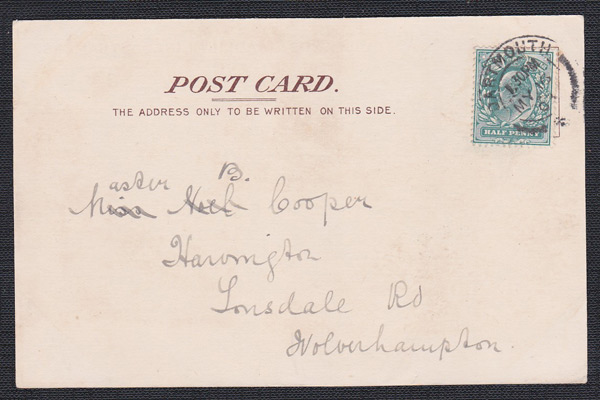 POST CARD.
THE ADDRESS ONLY TO BE WRITTEN ON THIS SIDE.
HALF PENNY
1.30PM
MY
aster B.
Miss Cooper
Harvington
Lonsdale Rd
Wolverhampton.